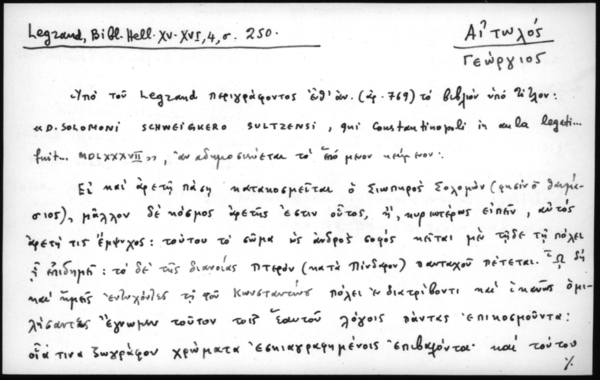 Legrand, Bibl. Hell. XV-XVI, 4, σ. 250.
Αἰτωλός
Γεώργιος
Ὑπό τοῦ Legrand περιγράφοντος ἐθ' ἀν. (ἀρ. 769) τό βιβλίον ὑπό τίτλον:
«D. SOLOMONI SCHWEIGKERO SULTZENSI, qui Constantinopoli in aula legati...
fuit... MDLXXXVII», ἀναδημοσιεύεται τό ἑπόμενον κείμενον:
Εἰ καί ἀρετῇ πάσῃ κατακοσμεῖται ὁ Σιωπηρός Σολομών (φησίν ὁ θαυμά-
σιος), μᾶλλον δέ κόσμος ἀρετῆς ἐστιν οὗτος, ἤ, κυριωτέρως εἰπεῖν, αὐτός
ἀρετή τις ἔμψυχος: τούτου τό σῶμα ὡς ἀνδρός σοφός κεῖται μέν τῇδε τῇ πόλει
ᾗ ἐπιδημεῖ: τό δέ τῆς διανοίας πτερόν (κατά Πίνδαρον) πανταχοῦ πέτεται. Ὧ δή
καί ἡμεῖς ἐντυχόντες τῇ τοῦ Κωνσταντίνου πόλει ἐνδιατρίβοντι καί ἱκανῶς ὁμι-
λήσαντες ἔγνωμεν τοῦτον τοῖς ἑαυτοῦ λόγοις πάντας ἐπικοσμοῦντα:
οἷά τινα ζωγράφον χρώματα ἐσκιαγραφημένοις ἐπιβαλόντα· καί τούτου
%